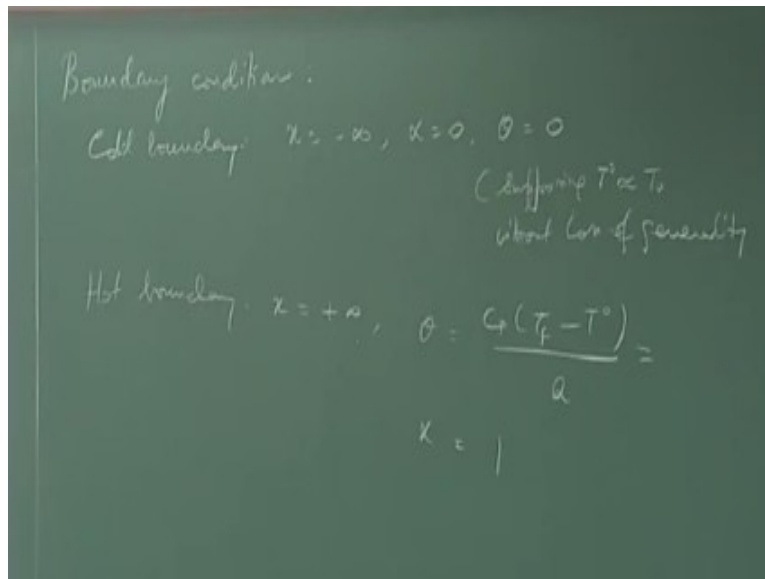 Boundary conditions:
Cold boundary: x = -∞, χ = 0, θ = 0
(Supposing T° ∝ T₀
without loss of generality
Hot boundary. x = +∞, θ = Cp(T_f - T°)/Q =
χ = 1